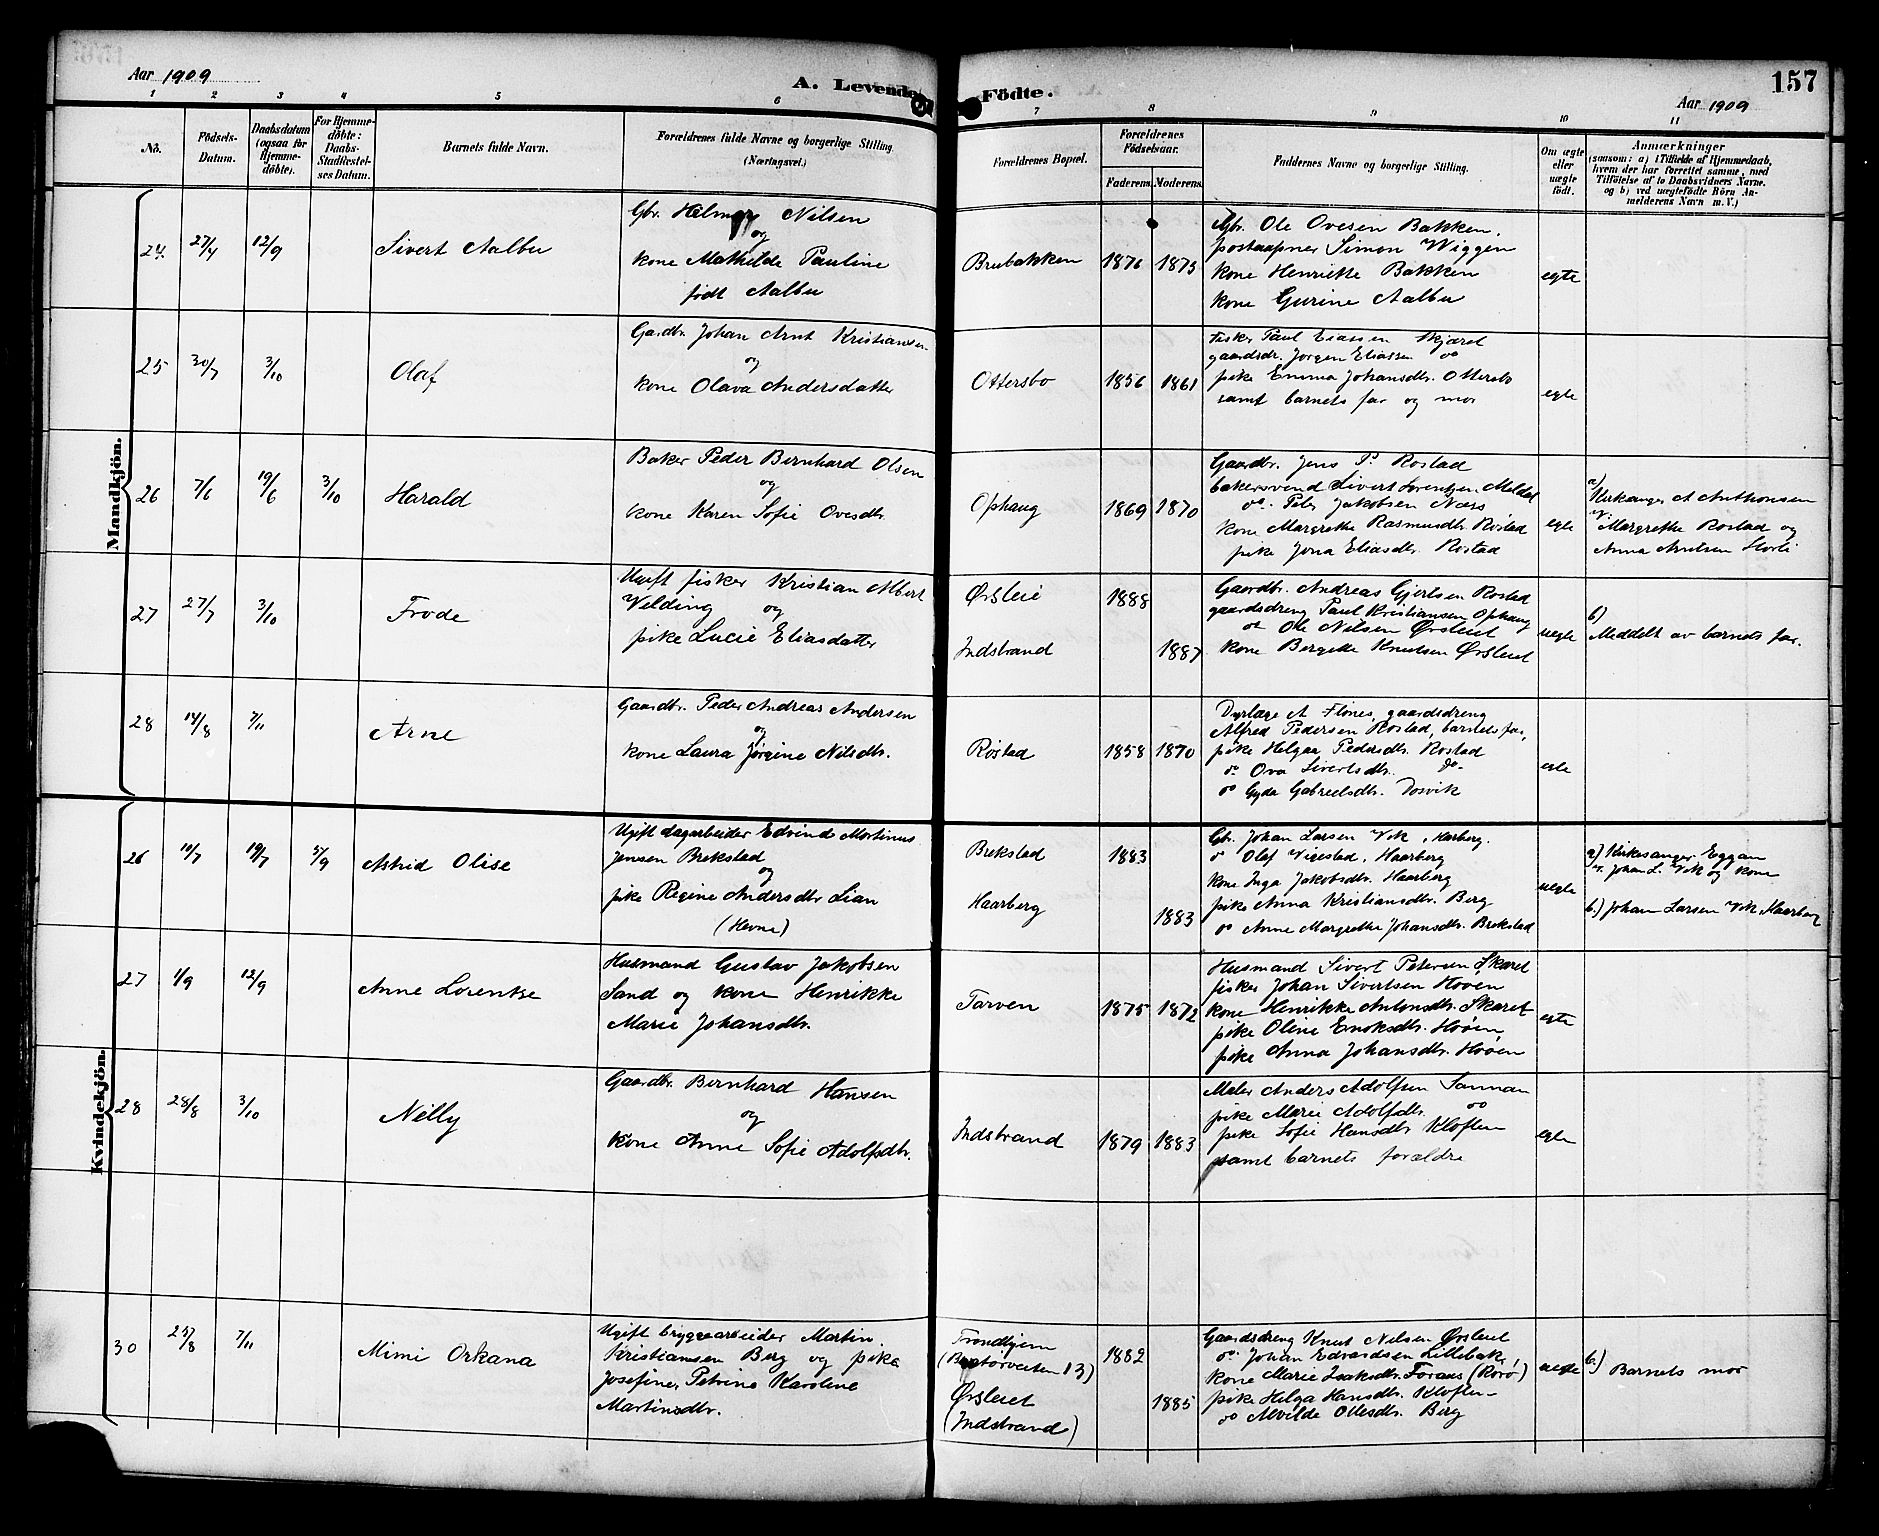 Aar 1909
A. Levende
Födte.
157
Aar 1909
1 2 3 4 5 6 7 8 9 10 11
No.
Födsels-
Datum.
Daabsdatum
(ogsaa för
Hjemme-
döbte).
For Hjemme-
döbte:
Daabs-
Stadfæstel-
ses Datum.
Barnets fulde Navn.
Forældrenes fulde Navne og borgerlige Stilling
(Næringsvei.)
Forældrenes Bopæl.
Forældrenes
Födselsaar.
Faderens.
Moderens.
Faddernes Navne og borgerlige Stilling.
Om ægte
eller
uægte
födt.
Anmærkninger
(saasom: a) i Tilfælde af Hjemmedaab,
hvem der har forrettet samme, med
Tilföielse af to Daabsvidners Navne.
og b) ved uægtefödte Börn An-
melderens Navn m. V.)
Mandkjön.
24. 27/4 12/9
Sivert Aalbu
Gbr. Helmer Nilsen
og
kone Mathilde Pauline
født Aalbu
Brubakken
1876 1875
Gbr. Ole Ovesen Bakken,
postaapner Simon Wiggen
kone Henriette Bakken
kone Gurine Aalbu
egte
25 30/7 3/10
Olaf
Gardbr. Johan Arnt Kristiansen
og
kone Olava Andersdatter
Ottersbo
1856 1861
Fisker Paul Eiassen Skjæret
gaardsdr. Jorgen Eliassen do
pike Emma Johansdtr. Ottersbo
samt barnets far og mor
egte
26 7/6 19/6 3/10
Harald
Baker Peder Bernhard Olsen
og
kone Karen Sofie Ovesdtr.
Ophaug
1869 1870
Gaardbr. Jens P. Rostad
bakersvend Sivert Lorentzen Meldal
do. Peter Jakobsen Næss
kone Margrethe Rasmusdtr. Rostad
pike Jona Eliasdtr. Rostad
egte
a)
Kirkesanger A Anthonsen
v.
Margrethe Rostad og
Anna Arntsen Hovli
27 27/7 3/10
Frode
Ugift fisker Kristian Albert
Velding og
pike Lucie Eliasdatter
Ørsleie
Indstrand
1888
1887
Gaardbr. Andreas Gjertsen Rostad
gaardsdreng Paul Kristiansen Ophaug
do Ole Nilsen Ørsleiet
kone Bergette Knutsen Ørsleiet
uegte
b)
Meddelt av barnets far.
28 14/8 7/11
Arne
Gaardbr. Peder Andreas Andersen
og
kone Laura Jørgine Nilsdtr.
Røstad
1858 1870
Dyrlæge A Flønes, gaardsdreng
Alfred Pedersen Rostad, barnets far,
pike Helgaa Pedersdtr. Rostad
do. Ova Sivertsdtr. do.
do Gyda Gabrielsdtr. Dosvik
egte
Kvindekjön.
26 10/7 19/7 5/9
Astrid Olise
Ugift dagarbeider Edvind Martinus
Jensen Brekstad
og
pike Regine Andersdtr Lian
(Hevne)
Brekstad
Haarberg
1883
1883
Gbr. Johan Larsen Vik, Haarberg.
do Olaf Vigestad, Haarberg
kone Inga Jakobsdtr. Haarberg
pike Anna Kristiansdtr. Berg
do Anne Margrethe Johansdtr. Brekstad
uegte
a) Kirkesanger Eggan
v. Johan L. Vik og kone
b.) Johan Larsen Vik, Haarberg
27 1/9 12/9
Anne Lorentse
Husmand Gustav Jakobsen
Sand og kone Henrikke
Marie Johansdtr.
Tarven
1875 1872
Husmand Sivert Petersen Skaret
fisker Johan Sivertsen Hoven
kone Henrikke Antonsdtr. Skaret
pike Oline Enoksdtr. Høøen
pike Anna Johansdtr. Høøen
egte
28 28/8 3/10
Nelly
Gaardbr. Bernhard Hansen
og
kone Anne Sofie Adolfsdtr.
Indstrand
1879 1883
Maler Anders Adolfsen Sannan
pike Marie Adolfsdtr. do
pike Sofie Hansdtr Kloften
samt barnets forældre
egte
30 25/8 7/11
Mimi Orkana
Ugift bryggearbeider Martin
Kristiansen Berg og pike
Josefine, Petrine Karoline
Martinsdtr.
Trondhjem
13)
Ørsleiet
(Indstrand)
1882
1885
Gaardsdreng Knut Nilsen Ørsleiet
do. Johan Edvardsen Lillebake,
kone Marie Isaksdtr. Foraas (Roro)
pike Helga Hansdtr. Kloften
do Alvilde Ottesdtr. Berg
uegte
b.) Barnets mor